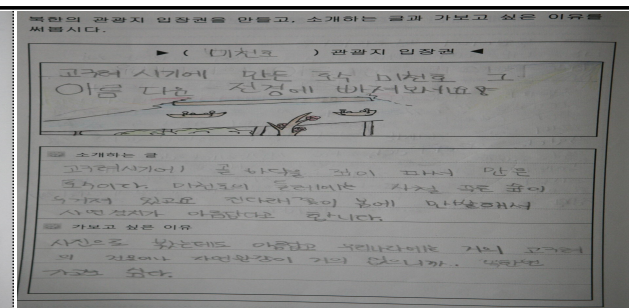 북한의 관광지 입장권을 만들고, 소개하는 글과 가보고 싶은 이유를
써봅시다.
▶ ( 미천호 ) 관광지 입장권 ◀
고구려 시기에 만든 호수 미천호 그
아름 다운 전경에 빠져보세요
소개하는 글
고구려시기에 골 바다를 막아 만든
호수이다. 미천호의 둘레에는 사철 푸른 숲이
우거져 있고요 진다래 꽃이 봄에 만발해서
아름답다고 합니다.
가보고 싶은 이유
사진으로 봤는데도 아름답고 우리나라에는 거의 고구려
의 자연환경이 거의 없으니까.
가고 싶다.